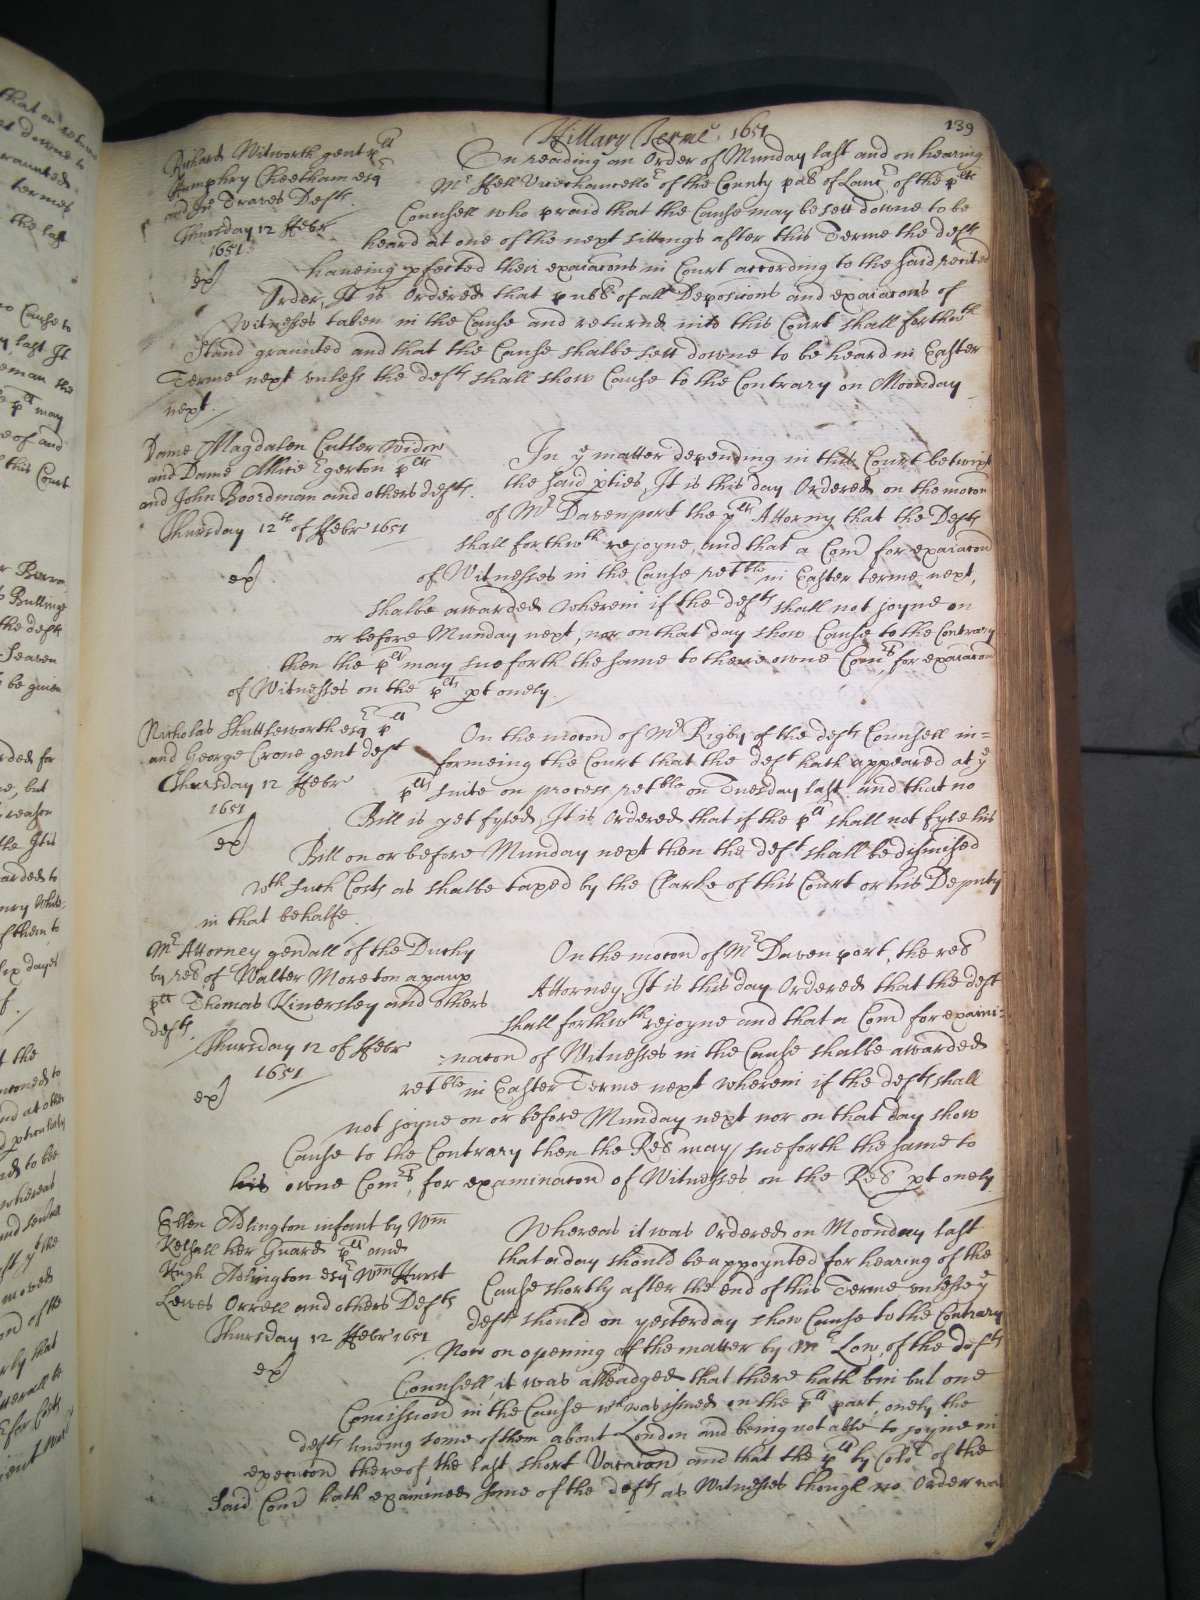 139
Hillary Terme 1651
Richard Witworth gent plt
Humphry Cheetham esq
and Traves Defts.
Thursday 12 Febr
1651.
ex
On reading an Order of Munday last and on hearing
Mr Hell Vicechancellor of the County pal of Lanc, of the plts
Counsell who praid that the Cause may be sett downe to be
heard at one of the next sittings after this Terme the defts
haueing pfected their exaiacons in Court according to the said recited
Order, It is Ordered that publ of all Deposicions and exaiacons of
Witnesses taken in the Cause and returned into this Court shall forthwth
Stand graunted and that the Cause shalbe sett downe to be heard in Easter
Terme next vnless the defts shall show Cause to the Contrary on Moonday
next.
Dame Magdalen Cutler Widow
and Dame Alice Egerton plts
and John Boordman and others defts.
Thursday 12th of Febr 1651
ex
In ye matter depending in this Court betwixt
the said pties, It is this day Ordered on the mocon
of Mr Davenport the plts Attorny that the Defts
shall forthwth rejoyne, and that a Comn for exaiacon
of Witnesses in the Cause retble in Easter terme next,
shalbe awarded wherein if the defts shall not joyne on
or before Munday next, nor on that day show Cause to the Contrary
then the plts may sue forth the same to theire owne Comrs for exaiacon
of Witnesses on the plts pt onely.
Nicholas Shuttleworth esq plt
and George Crone gent deft
Thursday 12 Febr
1651
ex
On the mocon of Mr Rigby of the defts Counsell in=
formeing the Court that the deft hath appeared at ye
plts suite on process retble on Tuesday last and that no
Bill is yet fyled, It is Ordered that if the plt shall not fyle his
Bill on or before Munday next then the deft shall be dismissed
wth such Costs as shalbe taxed by the Clarke of this Court or his Deputy
in that behalfe.
Mr Attorney genall of the Duchy
by rel of Walter Moreton a paup
plt Thomas Kinersley and others
defts.
Thursday 12 of Febr
1651
ex
On the mocon of Mr Davenport, the rels
Attorney, It is this day Ordered that the deft
shall forthwth rejoyne and that a Comn for exami=
=nacon of Witnesses in the Cause shalbe awarded
retble in Easter Terme next wherein if the defts shall
not joyne on or before Munday next nor on that day show
Cause to the Contrary then the Rel may sue forth the same to
his owne Comrs, for examinacon of Witnesses on the Rels pt onely
Ellen Adlington infant by Wm
Kelsall her Guard plt and
Hugh Adlington esqr Wm Hurst
Lewes Orrell and others Defts
Thursday 12 Febr 1651
ex
Whereas it was Ordered on Moonday last
that a day should be appoynted for hearing of the
Cause shortly after the end of this Terme vnlesse ye
defts should on yesterday show Cause to the Contrary
Now on opening of the matter by Mr Low, of the defts
Counsell it was alleadged that there hath bin but one
Comission in the Cause wch was issued on the plts part, onely, the
defts liueing some of them about London and being not able to joyne in
execucon thereof the last short Vacacon and that the plt by Color of the
said Comn hath examined some of the defts as Witnesses though no Order was